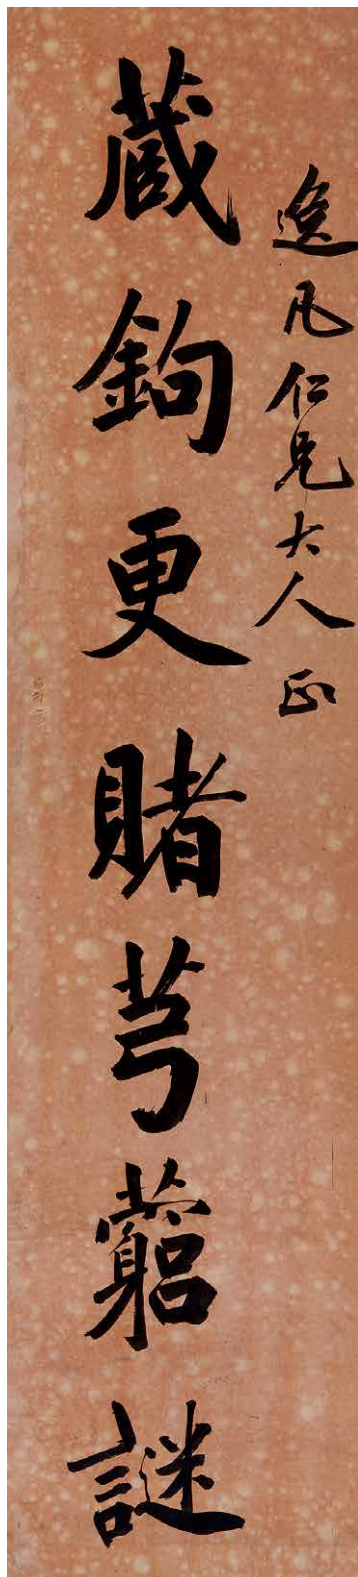 逸凡仁兄大人正
藏鉤更賭芎藭謎